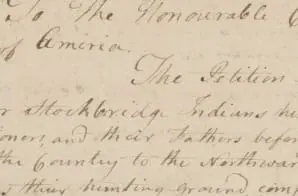 To the Honourable
of America.
The Petition
Stockbridge Indians
and their Fathers befor
the Country to the Northwar
their hunting ground, com